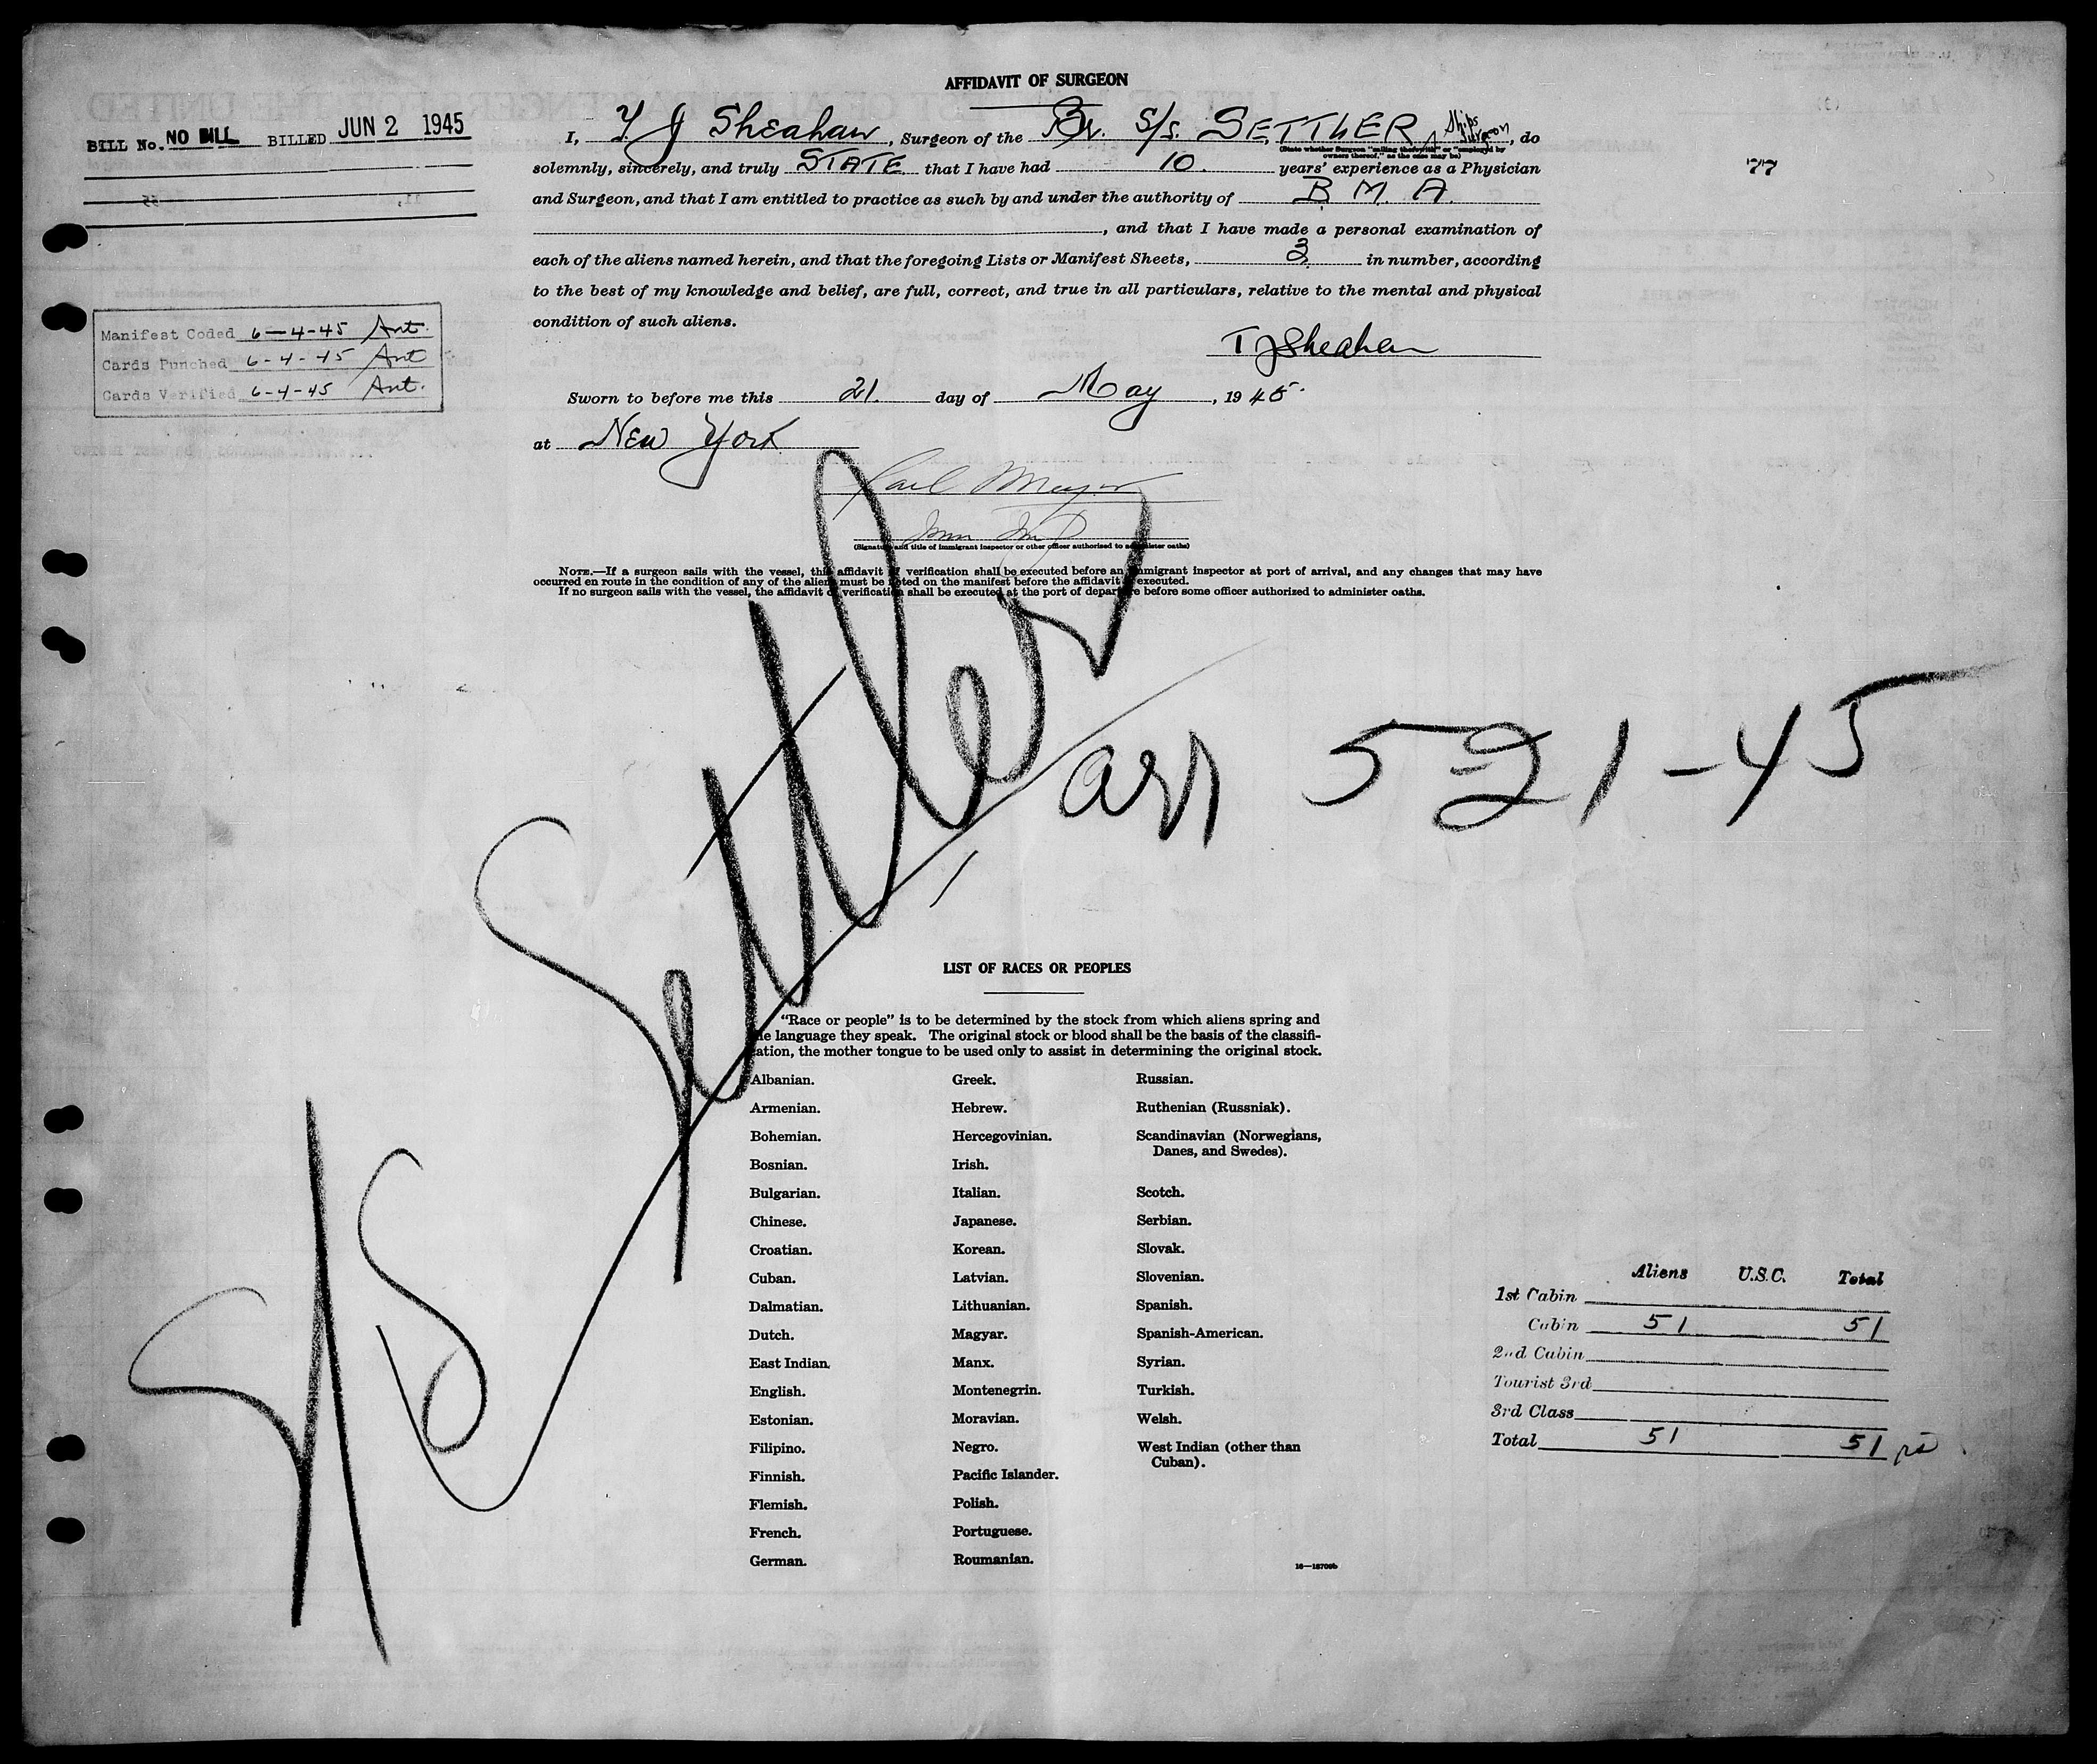 AFFIDAVIT OF SURGEON
BILL No. NO BILL BILLED JUN 2 1945
I, T J Sheahan, Surgeon of the Br. S/S. SETTLER, Ships Surgeon, do
(State whether Surgeon "sailing therewith" or "employed by
owners thereof," as the case may be)
solemnly, sincerely, and truly STATE that I have had 10. years' experience as a Physician
77
and Surgeon, and that I am entitled to practice as such by and under the authority of B. M. A.
, and that I have made a personal examination of
each of the aliens named herein, and that the foregoing Lists or Manifest Sheets, 3 in number, according
to the best of my knowledge and belief, are full, correct, and true in all particulars, relative to the mental and physical
condition of such aliens.
Manifest Coded 6-4-45 Ant.
Cards Punched 6-4-45 Ant
Cards Verified 6-4-45 Ant.
T J Sheahan
Sworn to before me this 21. day of May, 1945.
at New York
(Signature and title of immigrant inspector or other officer authorized to administer oaths)
NOTE.—If a surgeon sails with the vessel, this affidavit of verification shall be executed before an immigrant inspector at port of arrival, and any changes that may have
occurred en route in the condition of any of the aliens must be noted on the manifest before the affidavit is executed.
If no surgeon sails with the vessel, the affidavit of verification shall be executed at the port of departure before some officer authorized to administer oaths.
S/S Settler
arr 5-21-45
LIST OF RACES OR PEOPLES
"Race or people" is to be determined by the stock from which aliens spring and
the language they speak. The original stock or blood shall be the basis of the classifi-
cation, the mother tongue to be used only to assist in determining the original stock.
Albanian.
Armenian.
Bohemian.
Bosnian.
Bulgarian.
Chinese.
Croatian.
Cuban.
Dalmatian.
Dutch.
East Indian.
English.
Estonian.
Filipino.
Finnish.
Flemish.
French.
German.
Greek.
Hebrew.
Hercegovinian.
Irish.
Italian.
Japanese.
Korean.
Latvian.
Lithuanian.
Magyar.
Manx.
Montenegrin.
Moravian.
Negro.
Pacific Islander.
Polish.
Portuguese.
Roumanian.
Russian.
Ruthenian (Russniak).
Scandinavian (Norwegians,
Danes, and Swedes).
Scotch.
Serbian.
Slovak.
Slovenian.
Spanish.
Spanish-American.
Syrian.
Turkish.
Welsh.
West Indian (other than
Cuban).
16—18709b
Aliens U.S.C. Total
1st Cabin
Cabin 51 51
2nd Cabin
Tourist 3rd
3rd Class
Total 51 51